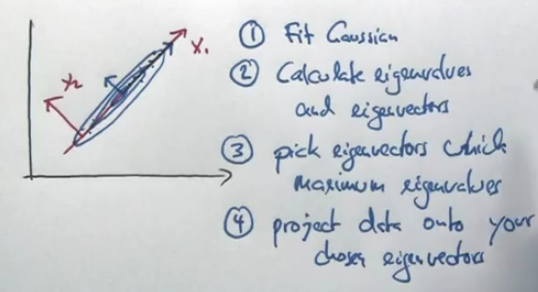 x₁
x₂
① Fit Gaussian
② Calculate eigenvalues
and eigenvectors
③ pick eigenvectors which
maximum eigenvalues
④ project data onto your
chosen eigenvectors